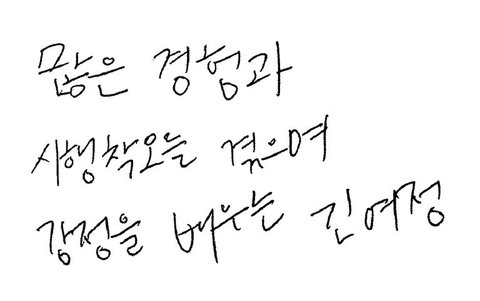 많은 경험과
시행착오를 겪으며
감정을 배우는 긴 여정